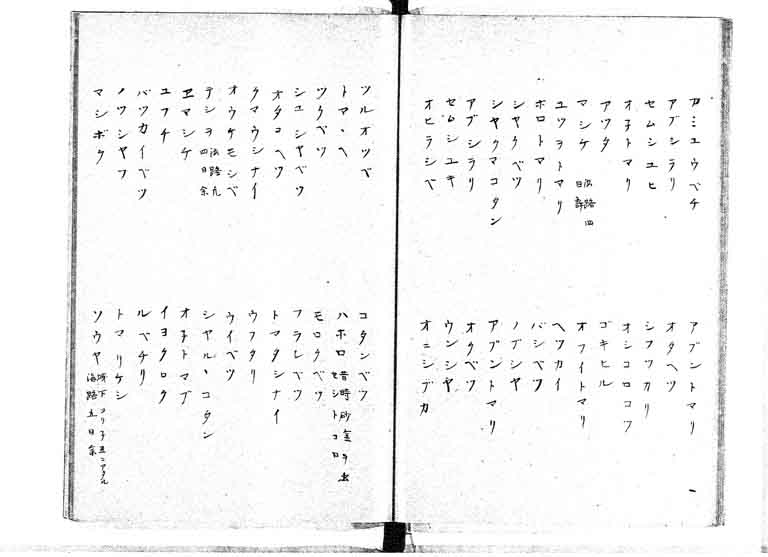 カミユウベチ
アブシラリ
セムシユヒ
オ子トマリ
アツタ
マシケ 浜路四
日
ユワヲトマリ
ポロトマリ
シヤクベツ
シヤクマコタン
アブシラリ
セムシユキ
オヒラシベ
アブントマリ
オタヘツ
シフツカリ
オシコロコフ
ゴキヒル
オフイトマリ
ヘツカイ
バシベツ
ノブシヤ
アブントマリ
オクベツ
ウンシヤ
オニシブカ
ツルオツベ
トマヽヘ
ツクベツ
シユシヤベツ
オタコヘツ
クマウシナイ
オウケモシベ
テシヲ 浜路九
四日余
ヱマシケ
ユフチ
バツカイベツ
ノツシヤフ
マシボク
コタンベツ
ハボロ 昔時砂金ヲ出
セシトコロ
モロクベツ
フラレベツ
トマタシナイ
ウフタリ
ウイベツ
シヤルヽコタン
オ子トマブ
イヨクロク
ルベチリ
トマリケシ
ソウヤ 城下ヨリ子丑ニアタル
海路五日余